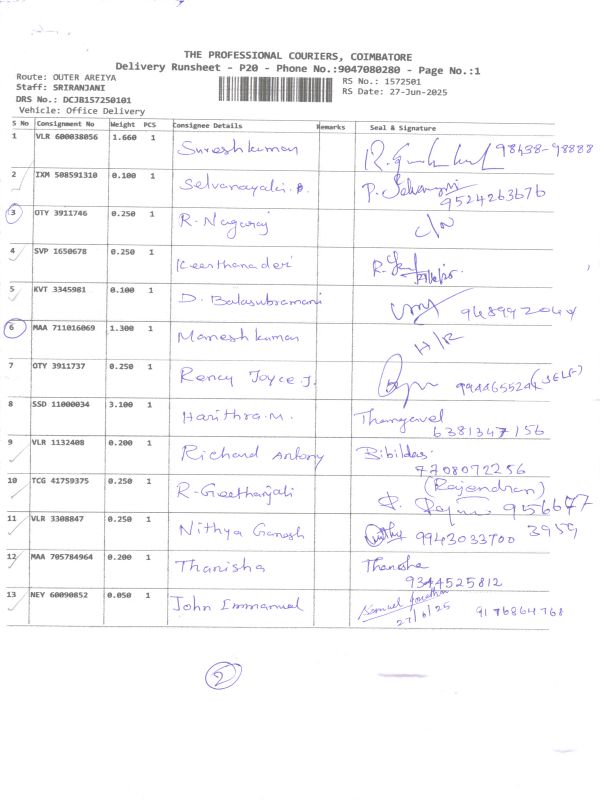 THE PROFESSIONAL COURIERS, COIMBATORE
Delivery Runsheet - P20 - Phone No.:9047080280 - Page No.:1
Route: OUTER AREIYA
RS No.: 1572501
Staff: SRIRANJANI
RS Date: 27-Jun-2025
DRS No.: DCJB157250101
Vehicle: Office Delivery
S No Consignment No Weight PCS Consignee Details Remarks Seal & Signature
1 VLR 600038056 1.660 1 Sureshkumar 98438-98888
2 IXM 508591310 0.100 1 Selvanayaki. P.
9524263676
3 OTY 3911746 0.250 1 R. Nagaraj
4 SVP 1650678 0.250 1 Keerthana devi
5 KVT 3345981 0.100 1 D. Balasubramani
6 MAA 711016069 1.300 1 Maneshkumar H/R
7 OTY 3911737 0.250 1 Rency Joyce J. (SELF)
8 SSD 11000034 3.100 1 Harithra.M. Thangavel
6381347156
9 VLR 1132408 0.200 1 Richard Antony Bibildas.
7708072256
10 TCG 41759375 0.250 1 R-Geethanjali (Rajendran)
11 VLR 3308847 0.250 1 Nithya Ganesh 9943033700 3959
12 MAA 705784964 0.200 1 Thanisha Thanisha
9344525812
13 NEY 60090852 0.050 1 John Immanuel Samuel Jonathan
27/6/25 9176864768
2